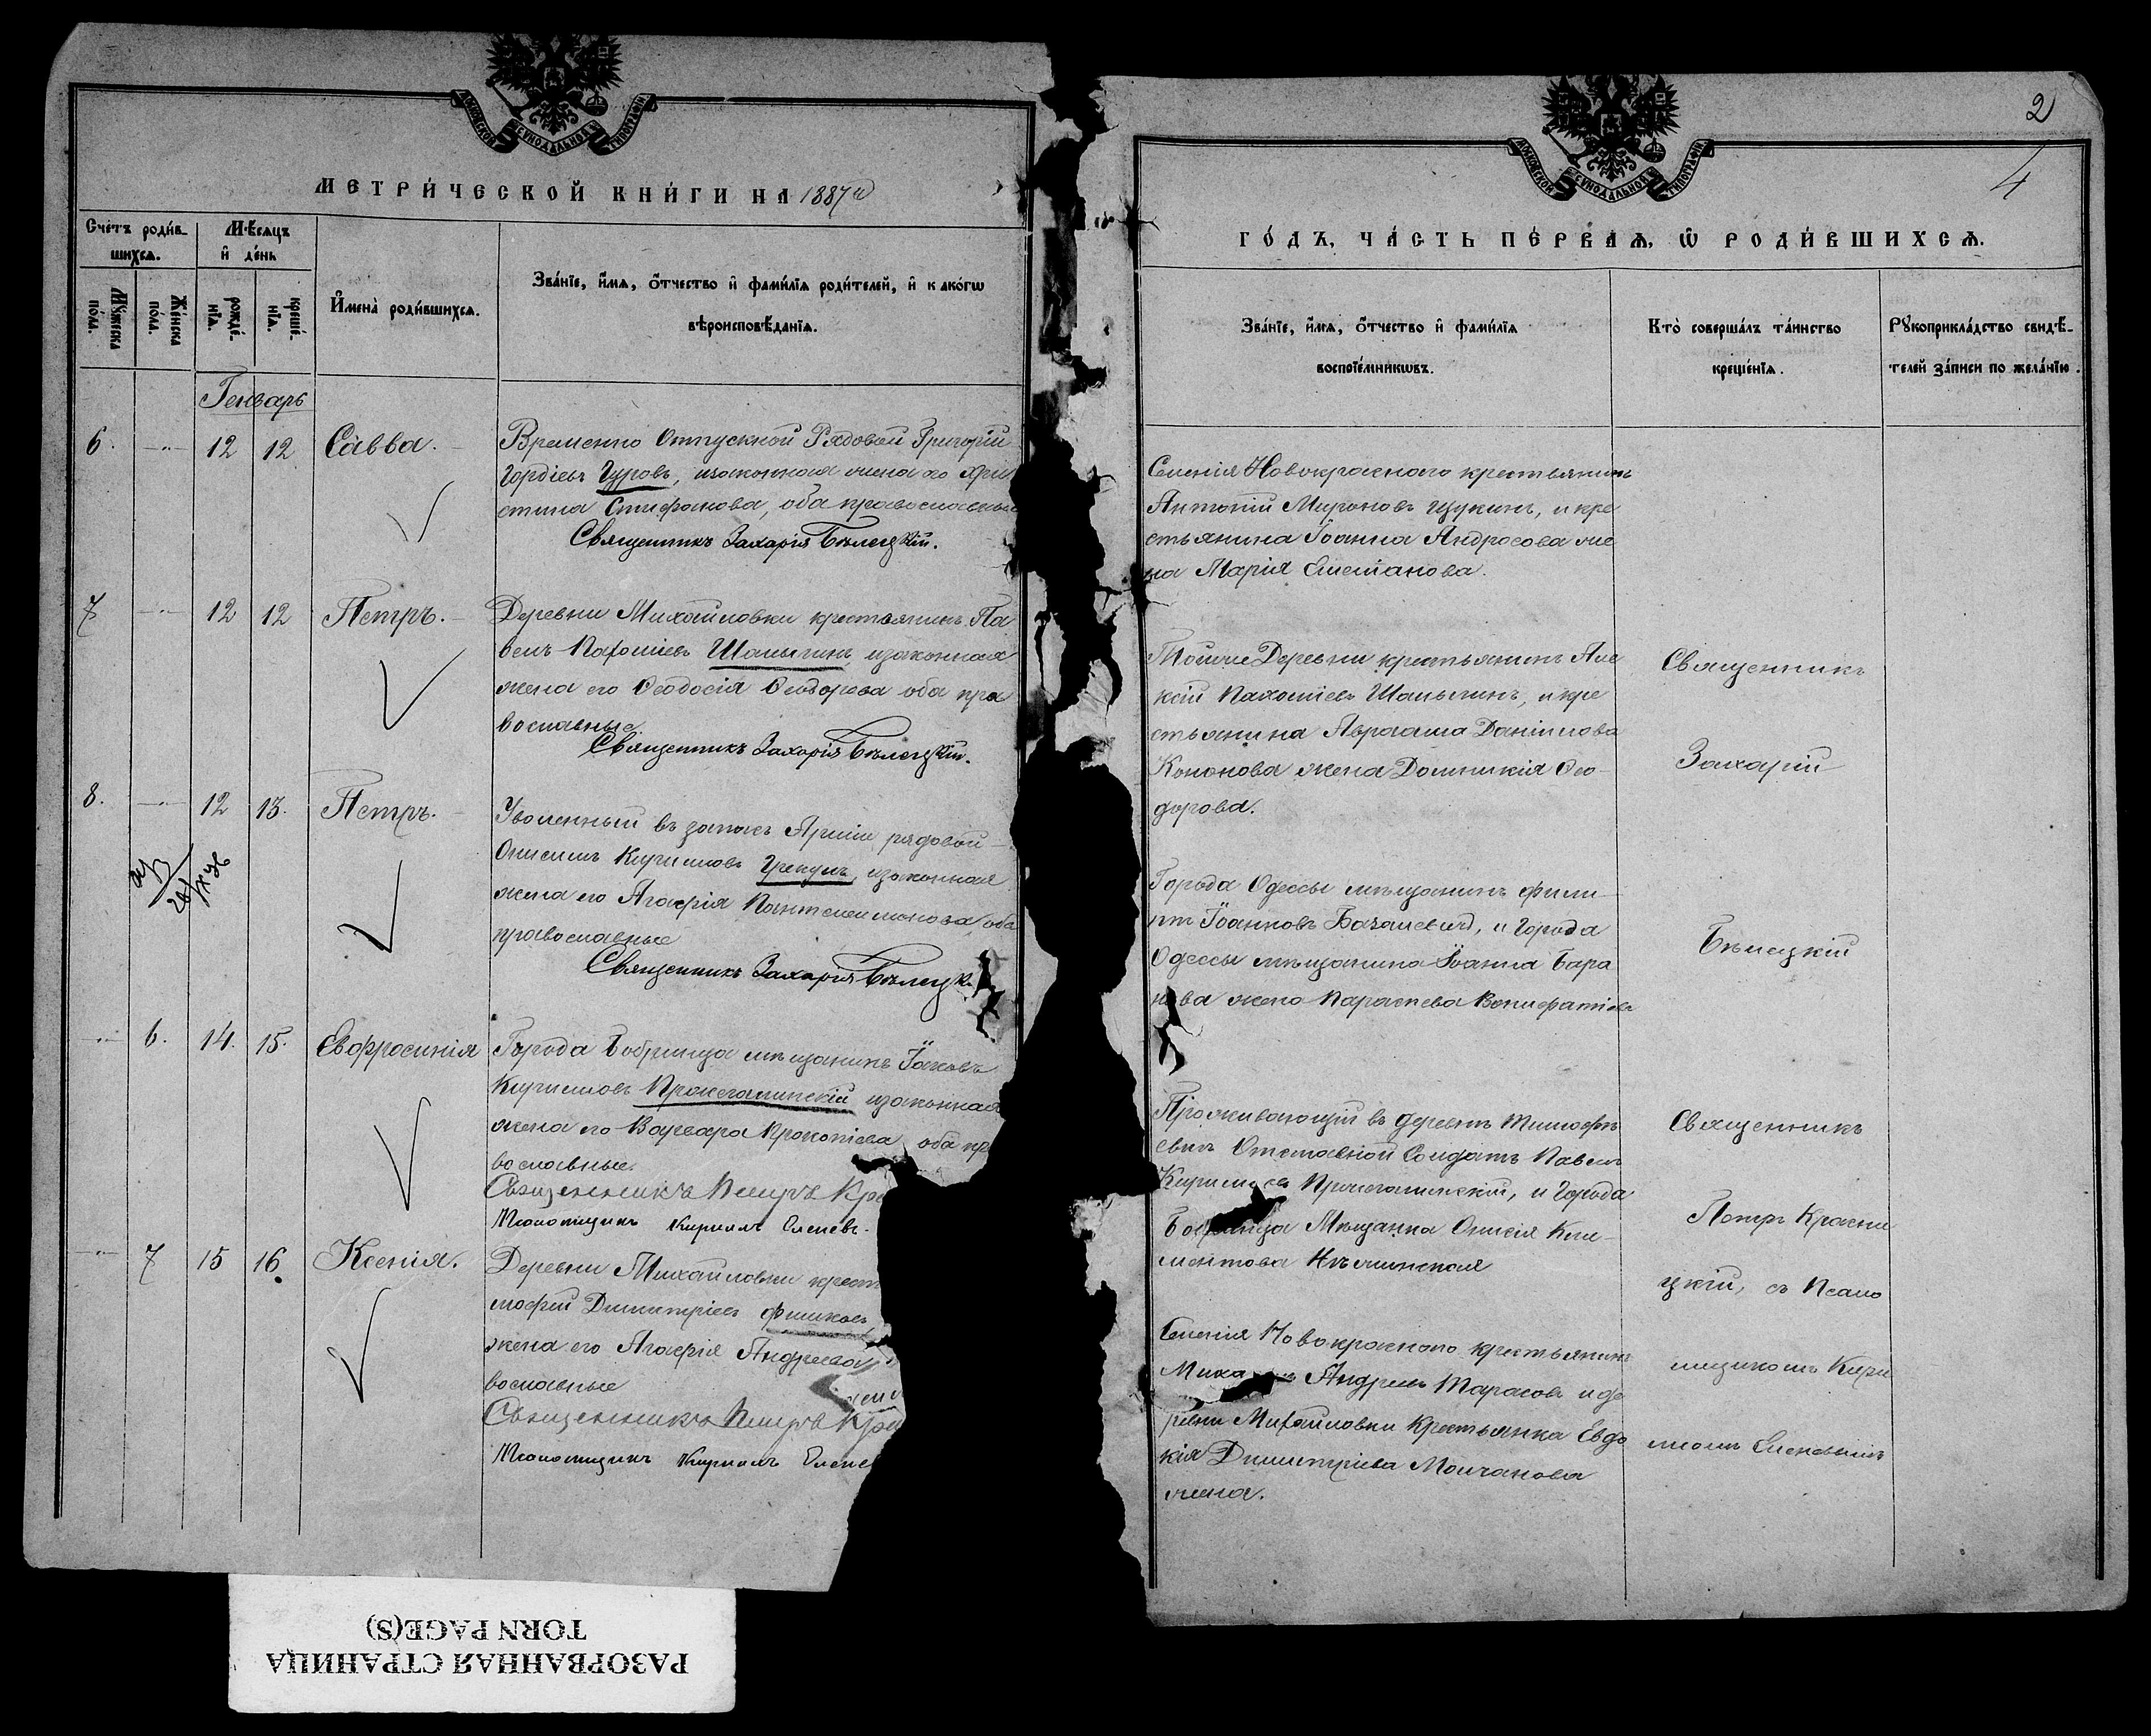 МОСКОВСКОЙ СѴНОДАЛЬНОЙ ТИПОГРАФІИ
МЕТРИ́ЧЕСКОЙ КНИ́ГИ НА 1887й
Сче́тъ роди́в-
шихся.
Мѣ́сяцъ
и҆ де́нь
Мꙋ́жеска
по́ла.
Же́нска
по́ла.
рожде́-
нїя.
креще́-
нїя.
И҆мена̀ роди́вшихся.
Зва́нїе, и҆́мя, ѻ҆́тчество и҆ фами́лїя роди́телей, и҆ како́гѡ
вѣроисповѣ́данїя.
Генварь
6. —"— 12 12 Савва. Временно Отпускной Рядовой Григорій
Гордіевъ Гуровъ, изаконная жена его Хри
стина Стефанова, оба православные
Священникъ Захарія Бѣлецкій.
7 —"— 12 12 Петръ. Деревни Михайловки крестьянинъ Па
велъ Пахоміевъ Шалыгинъ, изаконная
жена его Ѳеодосія Ѳеодорова оба пра
вославные
Священникъ Захарія Бѣлецкій.
8. —"— 12 13. Петръ. Уволенный въ запасъ Арміи рядовой
Онисимъ Кириловъ изаконная
жена его Агафія Пантелеимонова оба
православные
Священникъ Захарія Бѣлецк
—"— 6. 14. 15. Евфросинія Города Бобринца мѣщанинъ Іаковъ
Кириловъ изаконная
жена его Варвара Прокопіева оба пр
вославные.
Священникъ Петръ Кра
Псаломщикъ Кирилъ Еленев.
—"— 7 15 16. Ксенія. Деревни Михайловки крест
мофей Димитріевъ
жена его Агафія Андреева
вославные
Священникъ Петръ Кра
Псаломщикъ Кирилъ Елене
2
4
МОСКОВСКОЙ СѴНОДАЛЬНОЙ ТИПОГРАФІИ
ГО́ДЪ, ЧА́СТЬ ПЕ́РВАѦ, Ѡ҆ РОДИ́ВШИХСѦ.
Зва́нїе, и҆́мя, ѻ҆́тчество и҆ фами́лїя
воспрїе́мникѡвъ.
Кто̀ соверша́лъ та́инство
креще́нїя.
Рꙋкоприкла́дство свидѣ́-
телей за́писи по жела́нїю.
Селенія Новокраснаго крестьянинъ
Антоній Мироновъ Щукинъ, и кре
стьянина Іоанна Андросова же
на Марія
Тойже Деревни крестьянинъ Але
ксій Пахоміевъ Шалыгинъ, и кре
стьянина Авраама Даніилова
Кононова жена Домникія Ѳео-
дорова.
Священникъ
Захарій
Бѣлецкій
Города Одессы мѣщанинъ Фили-
пъ Іоанновъ и Города
Одессы мѣщанина Іоанна Бара
нова жена Параскева Вонифатіева
Проживающій въ деревнѣ Тимофѣ
евкѣ Отставной Солдатъ Павелъ
и Города
Бобринца Мѣщанка Онисія Кли-
ментова
Священникъ
Петръ Красни
цкій, съ Псало
мщикомъ Кири
ломъ Еленевымъ
Селенія Новокраснаго крестьянинъ
Миха Андреевъ Тарасовъ и де
ревни Михайловки Крестьянка Евдо
кія Димитріева Молчанова
жена.
РАЗОРВАННАЯ СТРАНИЦА
TORN PAGE(S)